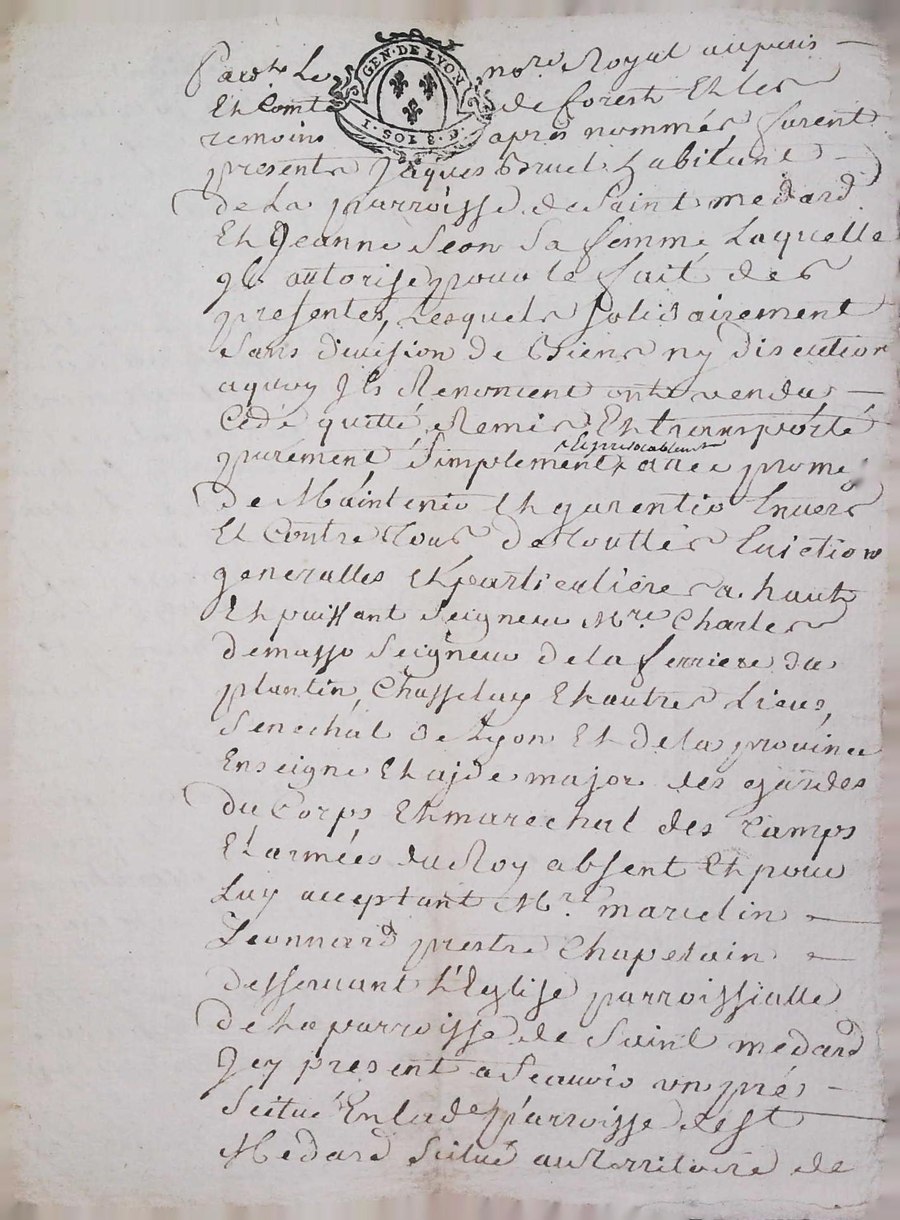 GEN. DE LYON
I. SOL. 8. d.
Pard.t Le no.re Royal aupais
Et Comté de forest Et les
temoins après nommés furent
presents Jaques Bruel habitant
de La parroisse de Saint medard
Et Jeanne Seon Sa femme Laquelle
Jl autorise pour le fait des
presentes, Lesquels Solidairement
Sans division de Biens ny discution
aquoy Jls Renoncent ont vendu
Cédé quitté Remis Et transporté
purement Simplement & Irrevocablement avec prome
de Maintenir Et garentir Envers
Et Contre Tous de touttes Evictions
generalles Et particulieres a haut
Et puissant Seigneur M.re Charles
demasso Seigneur de la ferriere du
plantin, Chasselay Et autres Lieus,
Senechal de Lyon Et de la province
Enseigne Et ajde major des gardes
du Corps Et marechal des Camps
Et armées du Roy absent Et pour
Luy acceptant M.r marcelin
Leonnard prestre Chapelain
desservant L'Eglise parroissialle
de La parroisse de Saint medard
Jcy present aScavoir un pré
Scitué En lade parroisse de St
Medard Scitué au Territoire de